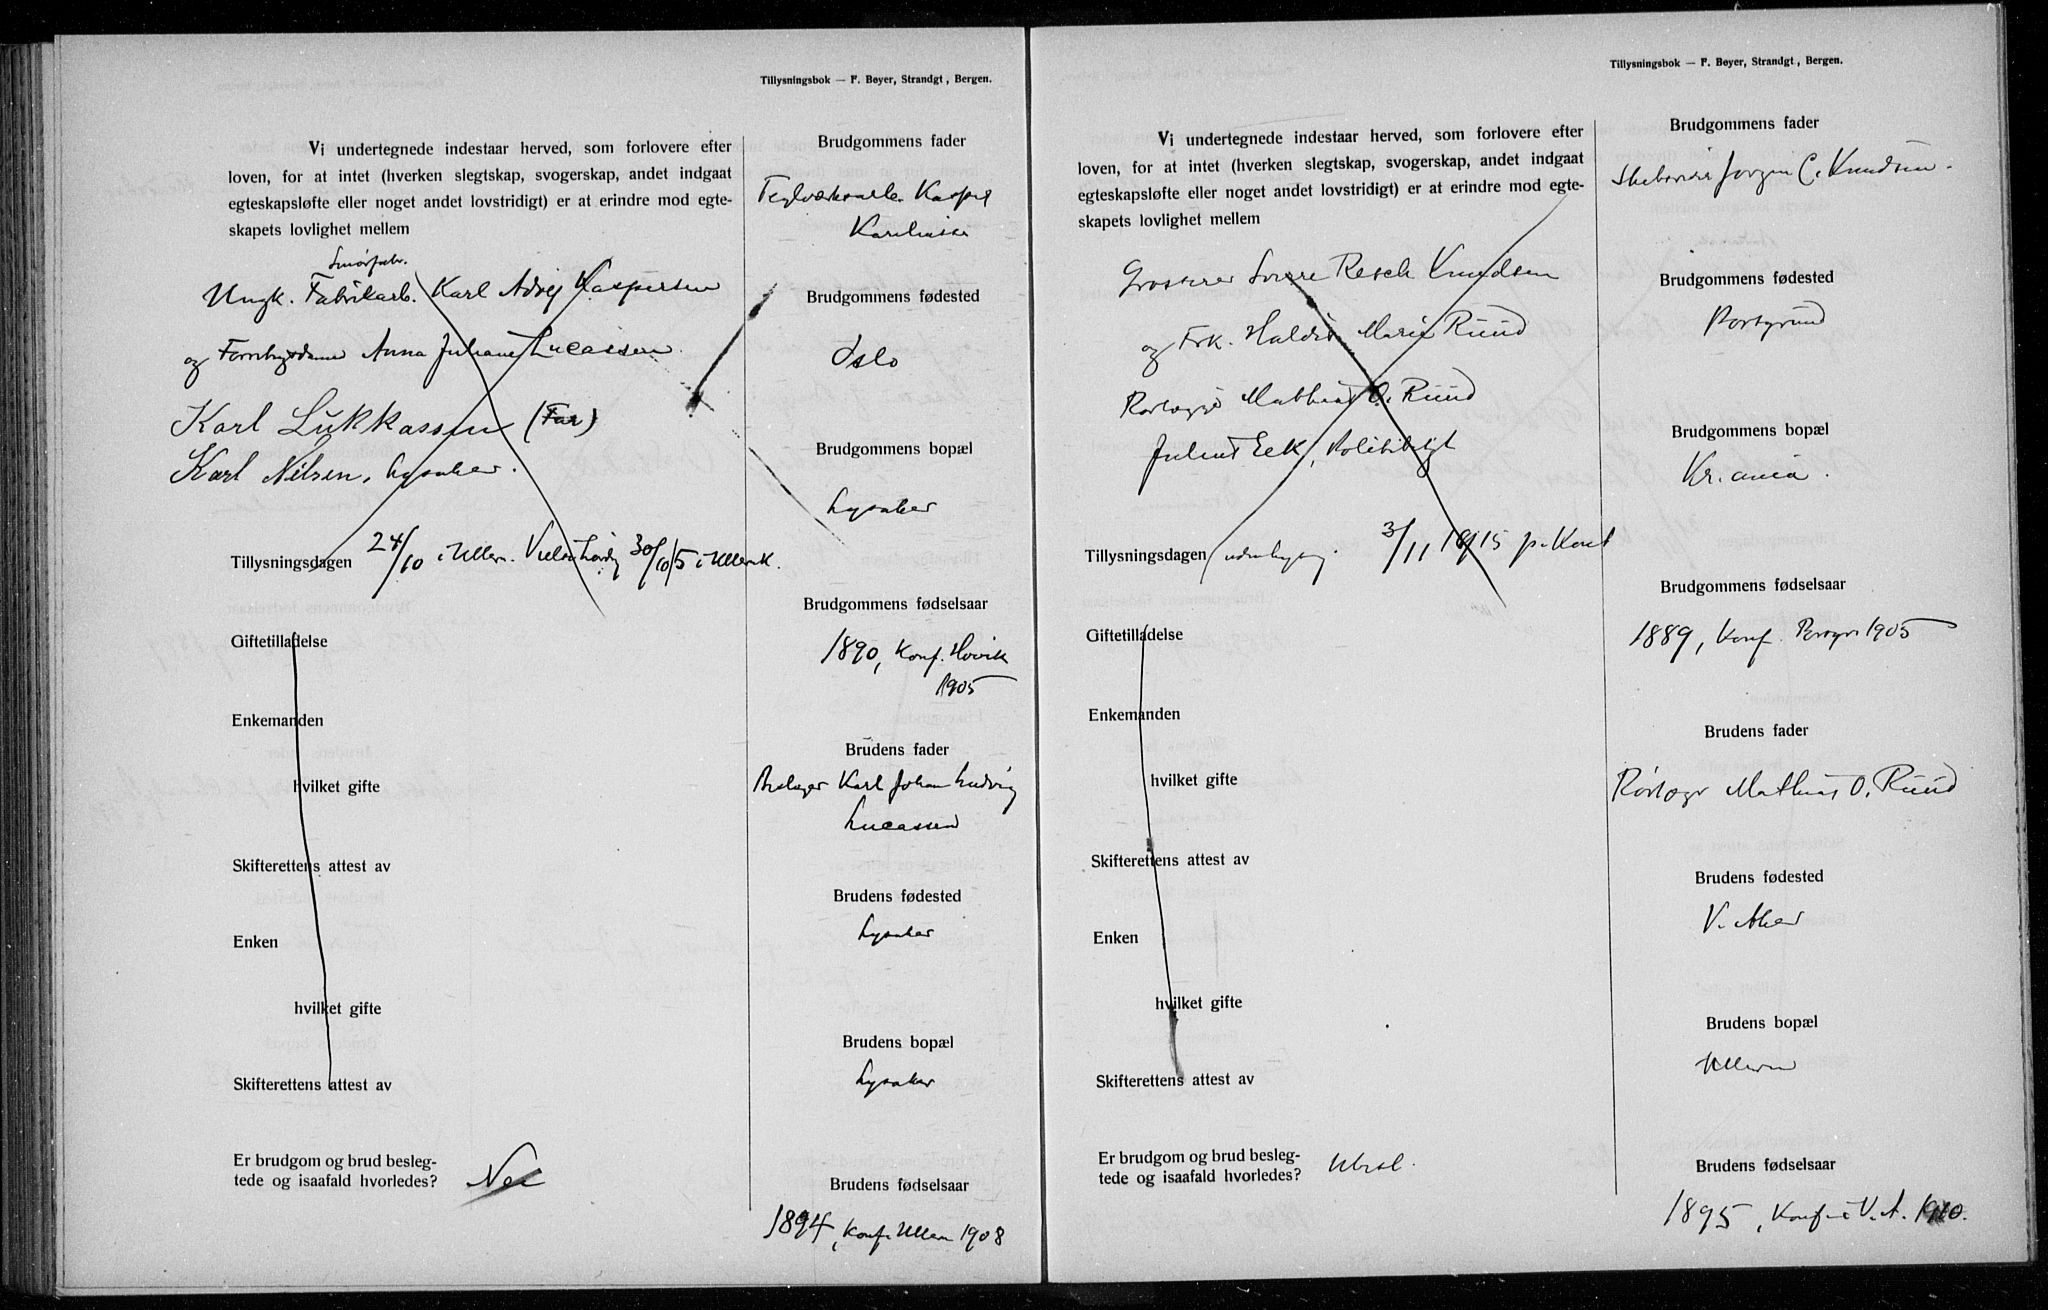 Tillysningsbok — F. Bøyer, Strandgt., Bergen.
Vi undertegnede indestaar herved, som forlovere efter
loven, for at intet (hverken slegtskap, svogerskap, andet indgaat
egteskapsløfte eller noget andet lovstridigt) er at erindre mod egte-
skapets lovlighet mellem
Smørfabr.
Ungk. Fabrikarb. Karl Adolf Kaspersen
og Anna Juliane Lucassen
Karl Lukkassen (Far)
Karl Nilsen, Lysaker.
Tillysningsdagen 24/10 i Ullern. 30/10 15 i Ullern k.
Giftetilladelse
Enkemanden
hvilket gifte
Skifterettens attest av
Enken
hvilket gifte
Skifterettens attest av
Er brudgom og brud besleg-
tede og isaafald hvorledes? Nei
Brudgommens fader
Teglverksarb. Kasper
Brudgommens fødested
Oslo
Brudgommens bopæl
Lysaker
Brudgommens fødselsaar
1890, Konf. Høvik
1905
Brudens fader
Karl Johan Ludvig
Lucassen
Brudens fødested
Lysaker
Brudens bopæl
Lysaker
Brudens fødselsaar
1894, Konf. Ullern 1908
Tillysningsbok — F. Bøyer, Strandgt., Bergen.
Vi undertegnede indestaar herved, som forlovere efter
loven, for at intet (hverken slegtskap, svogerskap, andet indgaat
egteskapsløfte eller noget andet lovstridigt) er at erindre mod egte-
skapets lovlighet mellem
Grosserer Sverre Resch Knudsen
og Frk. Haldis Marie Ruud
Rørlægger Mathias O. Ruud
Julius Eek, Politibetjt
Tillysningsdagen 3/11 1915 p. Kont
Giftetilladelse
Enkemanden
hvilket gifte
Skifterettens attest av
Enken
hvilket gifte
Skifterettens attest av
Er brudgom og brud besleg-
tede og isaafald hvorledes? Ubesl.
Brudgommens fader
Skibsreder Jørgen C. Knudsen.
Brudgommens fødested
Porsgrund
Brudgommens bopæl
Kr.ania.
Brudgommens fødselsaar
1889, Konf. Porsgr. 1905
Brudens fader
Rørlægr Mathias O. Ruud
Brudens fødested
V. Aker
Brudens bopæl
Ullern
Brudens fødselsaar
1895, Konf. i V. A. 1910.